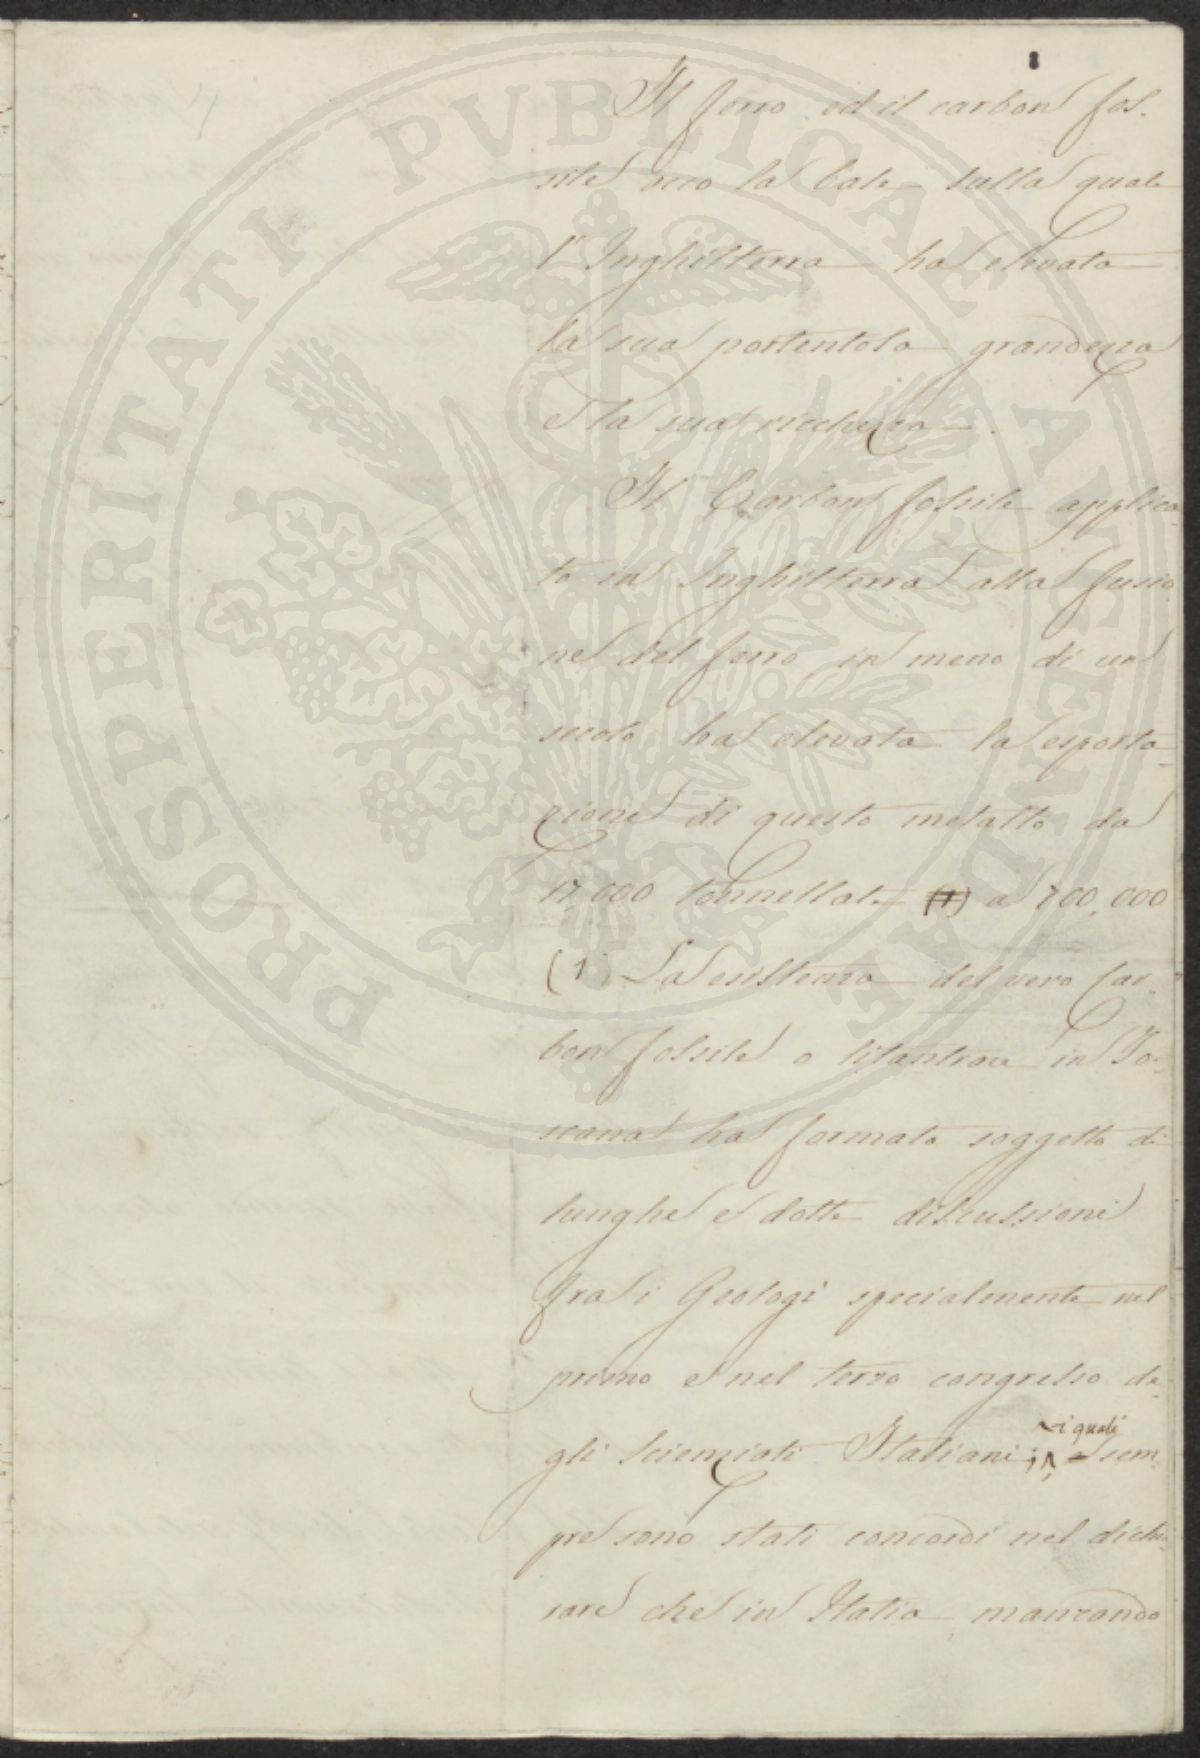 Il ferro ed il carbon fos-
sile ecco la base sulla quale
l'Inghilterra ha elevata
la sua portentosa grandezza
e la sua ricchezza.
Il Carbon fossile applica-
to in Inghilterra alla fusio
ne del ferro in meno di un
secolo ha elevata la esporta-
zione di questo metallo da
17,000 tonnellate (1) a 700,000
(1) La esistenza del vero Car-
bon fossile o litantrace in To-
scana ha formato soggetto di
lunghe e dotte discussioni
fra i Geologi specialmente nel
primo e nel terzo congresso de-
i quali
gli Scienziati Italiani; e sem-
pre sono stati concordi nel dichia-
rare che in Italia mancando
PROSPERITATI PVBLICAE AVGENDAE